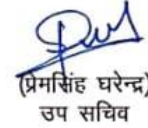 (प्रेमसिंह घरेन्द्र)
उप सचिव